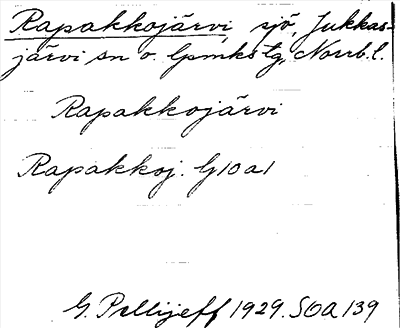 Rapakkojärvi, sjö, Jukkas-
järvi sn o. lpmkstg, Norrb. l.
Rapakkojärvi
Rapakkoj. G10a1
G. Pellijeff 1929. SOA 139